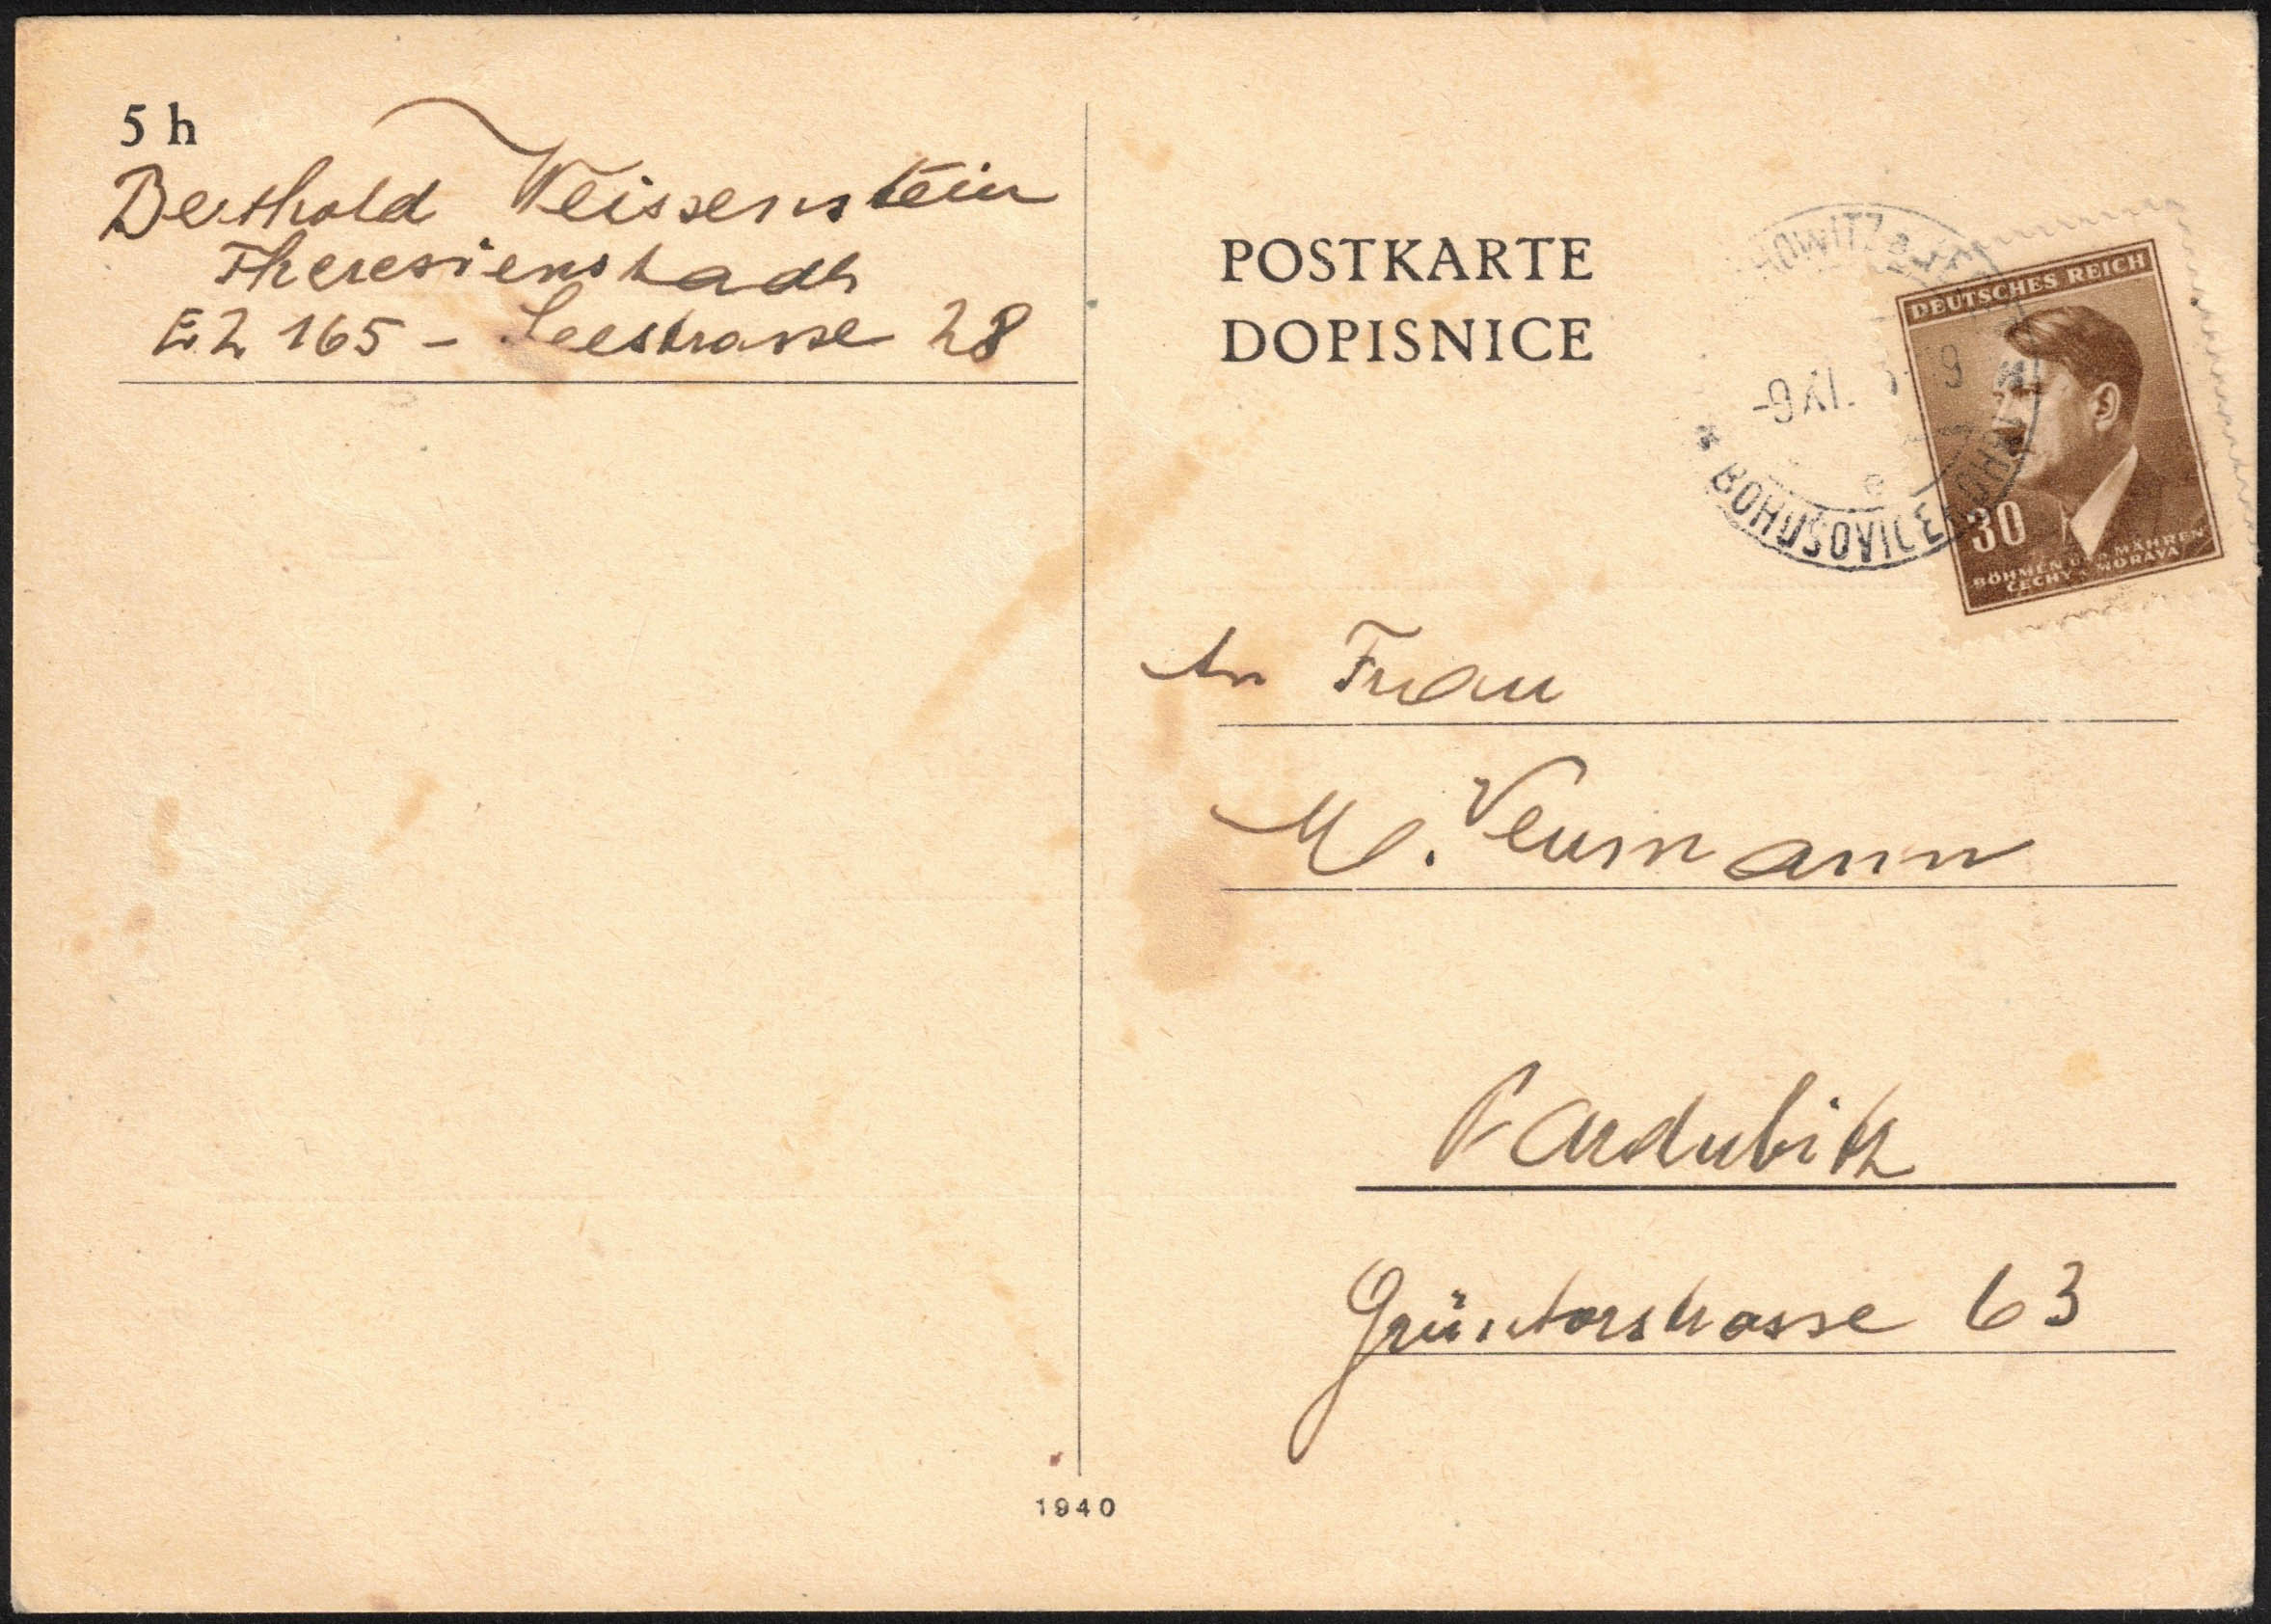 5 h
Berthold Weissenstein
Theresienstadt
EZ 165 - Seestrasse 28
POSTKARTE
DOPISNICE
HOWITZ
-9.XI.
e
* BOHUŠOVICE
DEUTSCHES REICH
30
BÖHMEN UND MÄHREN
ČECHY A MORAVA
An Frau
M. Neumann
Pardubitz
Grüntorstrasse 63
1940